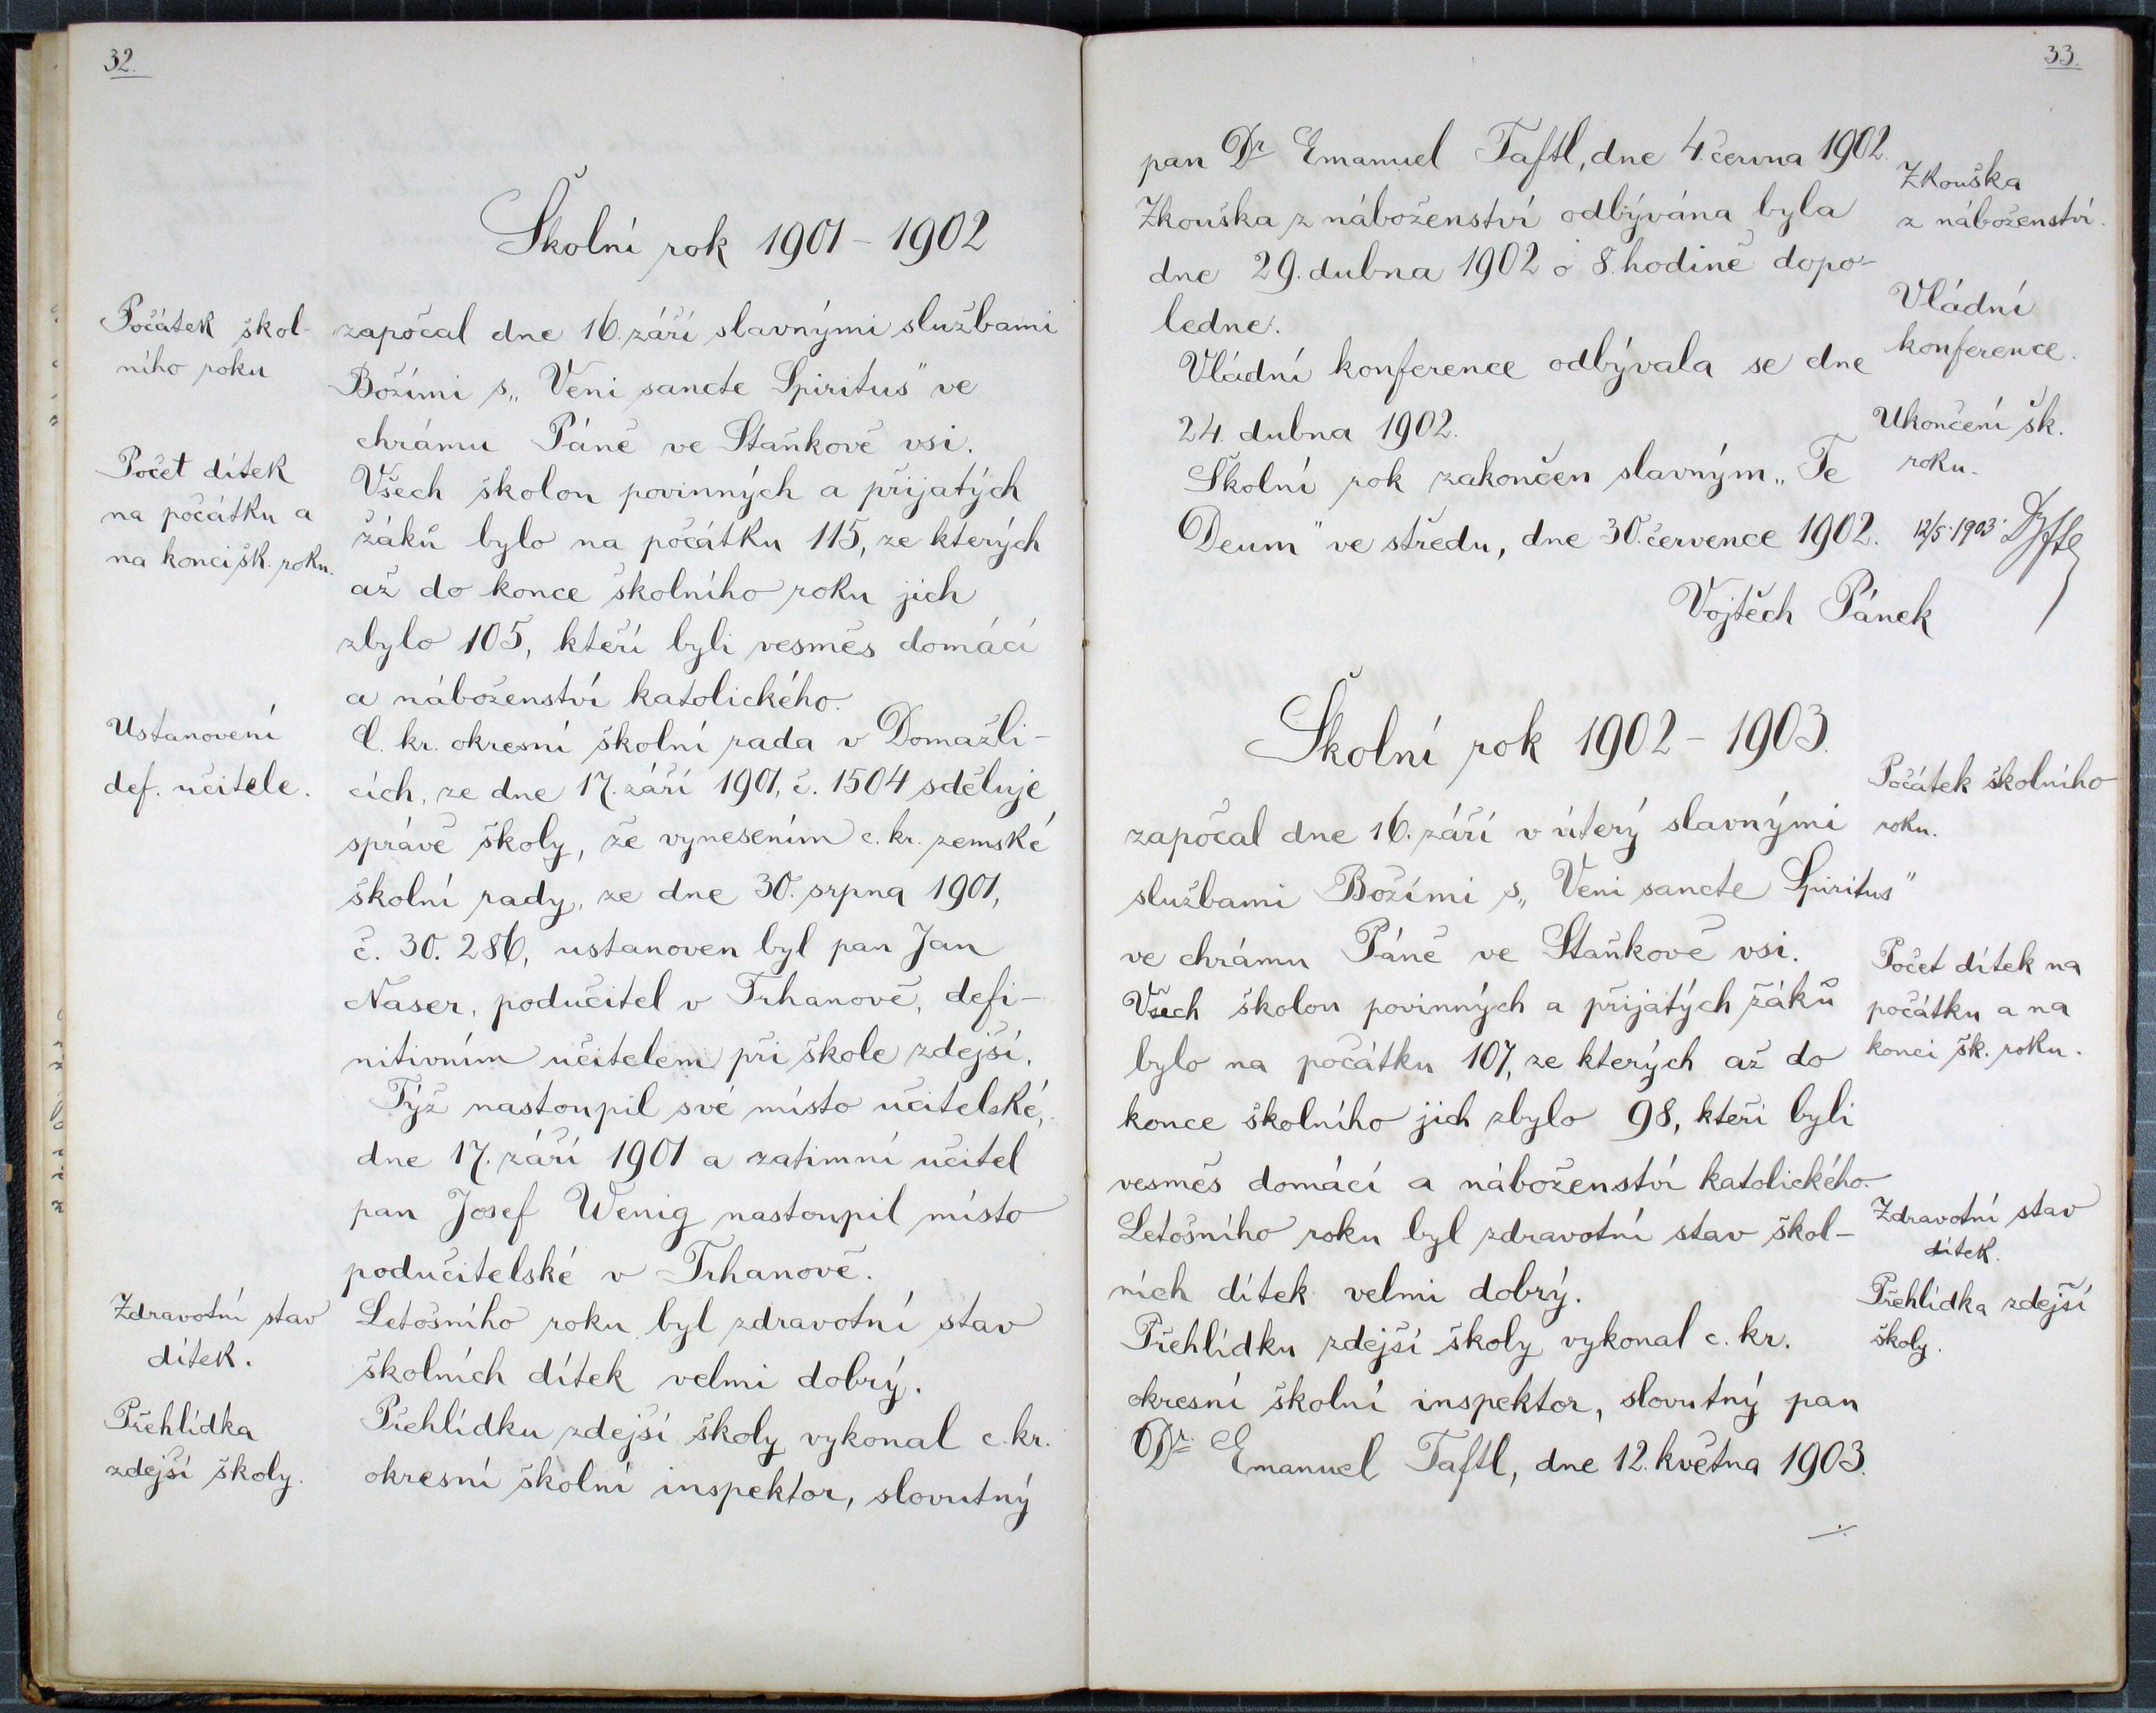 32.
Školní rok 1901 – 1902
Počátek škol-
ního roku
započal dne 16. září slavnými službami
Božími s „Veni sancte Spiritus" ve
chrámu Páně ve Staňkově vsi.
Počet dítek
na počátku a
na konci šk. roku.
Všech školou povinných a přijatých
žáků bylo na počátku 115, ze kterých
až do konce školního roku jich
zbylo 105, kteří byli vesměs domácí
a náboženství katolického.
Ustanovení
def. učitele.
C. kr. okresní školní rada v Domažli-
cích, ze dne 17. září 1901, č. 1504 sděluje
správě školy, že vynesením c. kr. zemské
školní rady, ze dne 30. srpna 1901,
č. 30.286, ustanoven byl pan Jan
Naser, podučitel v Trhanově, defi-
nitivním učitelem při škole zdejší.
Týž nastoupil své místo učitelské,
dne 17. září 1901 a zatimní učitel
pan Josef Wenig nastoupil místo
podučitelské v Trhanově.
Zdravotní stav
dítek.
Letošního roku byl zdravotní stav
školních dítek velmi dobrý.
Přehlídka
zdejší školy.
Přehlídku zdejší školy vykonal c. kr.
okresní školní inspektor, slovutný
33.
pan Dr Emanuel Taftl, dne 4. června 1902.
Zkouška
z náboženství.
Zkouška z náboženství odbývána byla
dne 29. dubna 1902 o 8. hodině dopo-
ledne.
Vládní
konference.
Vládní konference odbývala se dne
24. dubna 1902.
Ukončení šk.
roku.
Školní rok zakončen slavným „Te
Deum" ve středu, dne 30. července 1902.
12/5. 1903
Vojtěch Pánek
Školní rok 1902 – 1903.
Počátek školního
roku.
započal dne 16. září v úterý slavnými
službami Božími s „Veni sancte Spiritus"
ve chrámu Páně ve Staňkově vsi.
Počet dítek na
počátku a na
konci šk. roku.
Všech školou povinných a přijatých žáků
bylo na počátku 107, ze kterých až do
konce školního jich zbylo 98, kteři byli
vesměs domácí a náboženství katolického.
Zdravotní stav
dítek.
Letošního roku byl zdravotní stav škol-
ních dítek velmi dobrý.
Přehlídka zdejší
školy.
Přehlídku zdejší školy vykonal c. kr.
okresní školní inspektor, slovutný pan
Dr. Emanuel Taftl, dne 12. května 1903.
./.